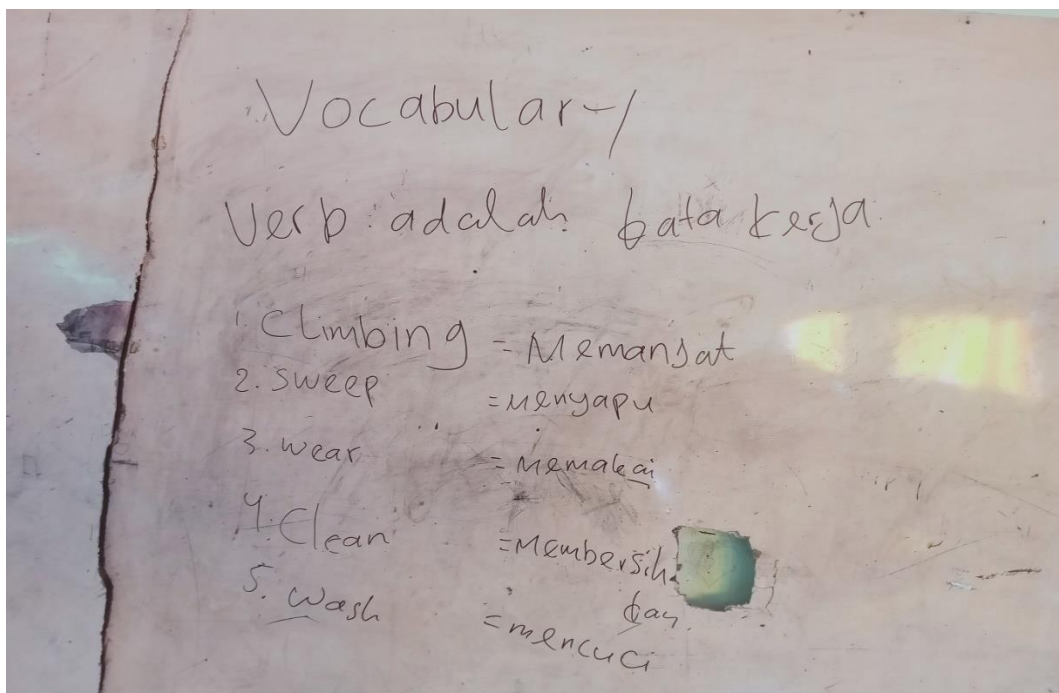 Vocabulary
Verb adalah kata kerja
1. Climbing = Memanjat
2. Sweep = Menyapu
3. wear = Memakai
4. Clean = Membersih
kan
5. Wash = mencuci